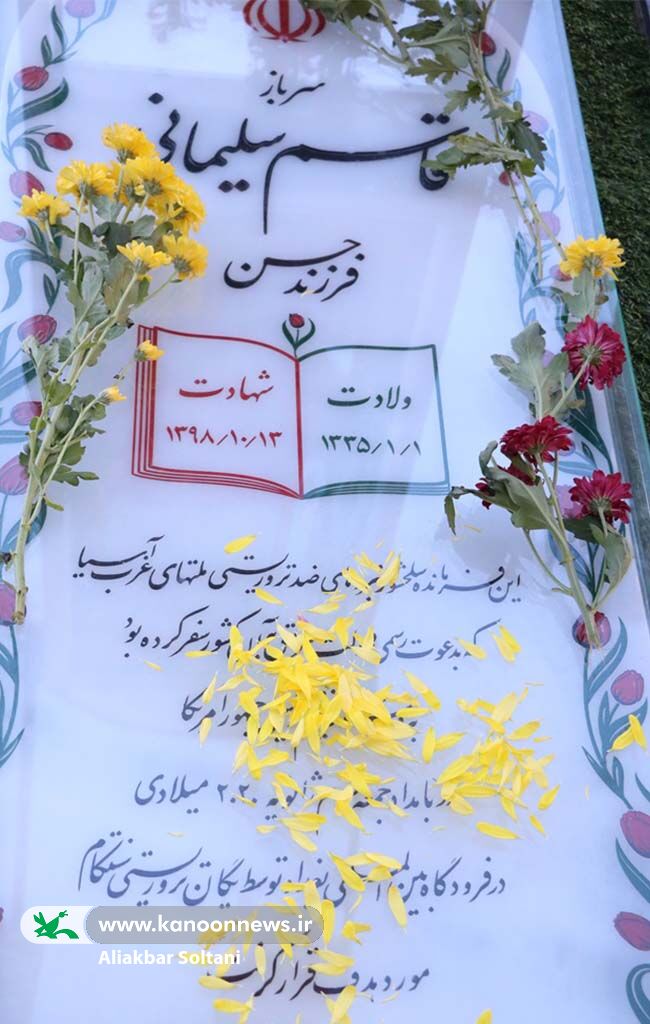 سرباز
قاسم سلیمانی
فرزند حسن
ولادت
۱۳۳۵/۱/۱
شهادت
۱۳۹۸/۱۰/۱۳
این فرمانده سلحشور ضد تروریستی ملتهای غرب آسیا
که بدعوت رسمی آن کشور سفر کرده بود
امریکا
بامداد جمعه ژانویه ۲۰۲۰ میلادی
در فرودگاه بین المللی بغداد توسط یگان تروریستی
مورد هدف قرار گرفت
www.kanoonnews.ir
Aliakbar Soltani